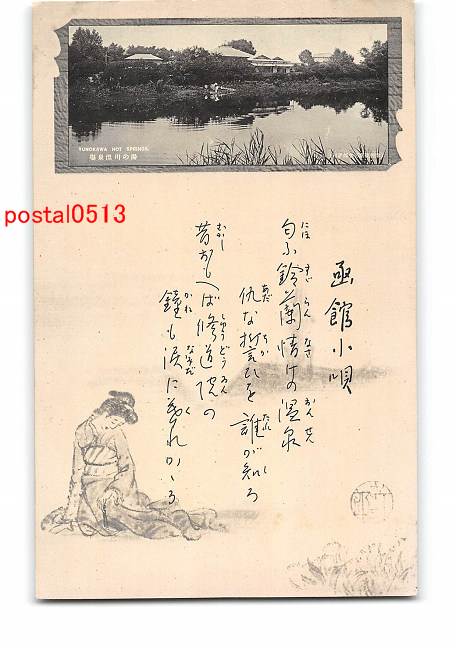 YUNOKAWA HOT SPRINGS.
塩泉温川の湯
postal0513
函館小唄
匂ふ鈴蘭情けの温泉
仇な誓ひを誰が知ろ
昔おもへば修道院の
鐘も涙に暮れかゝる